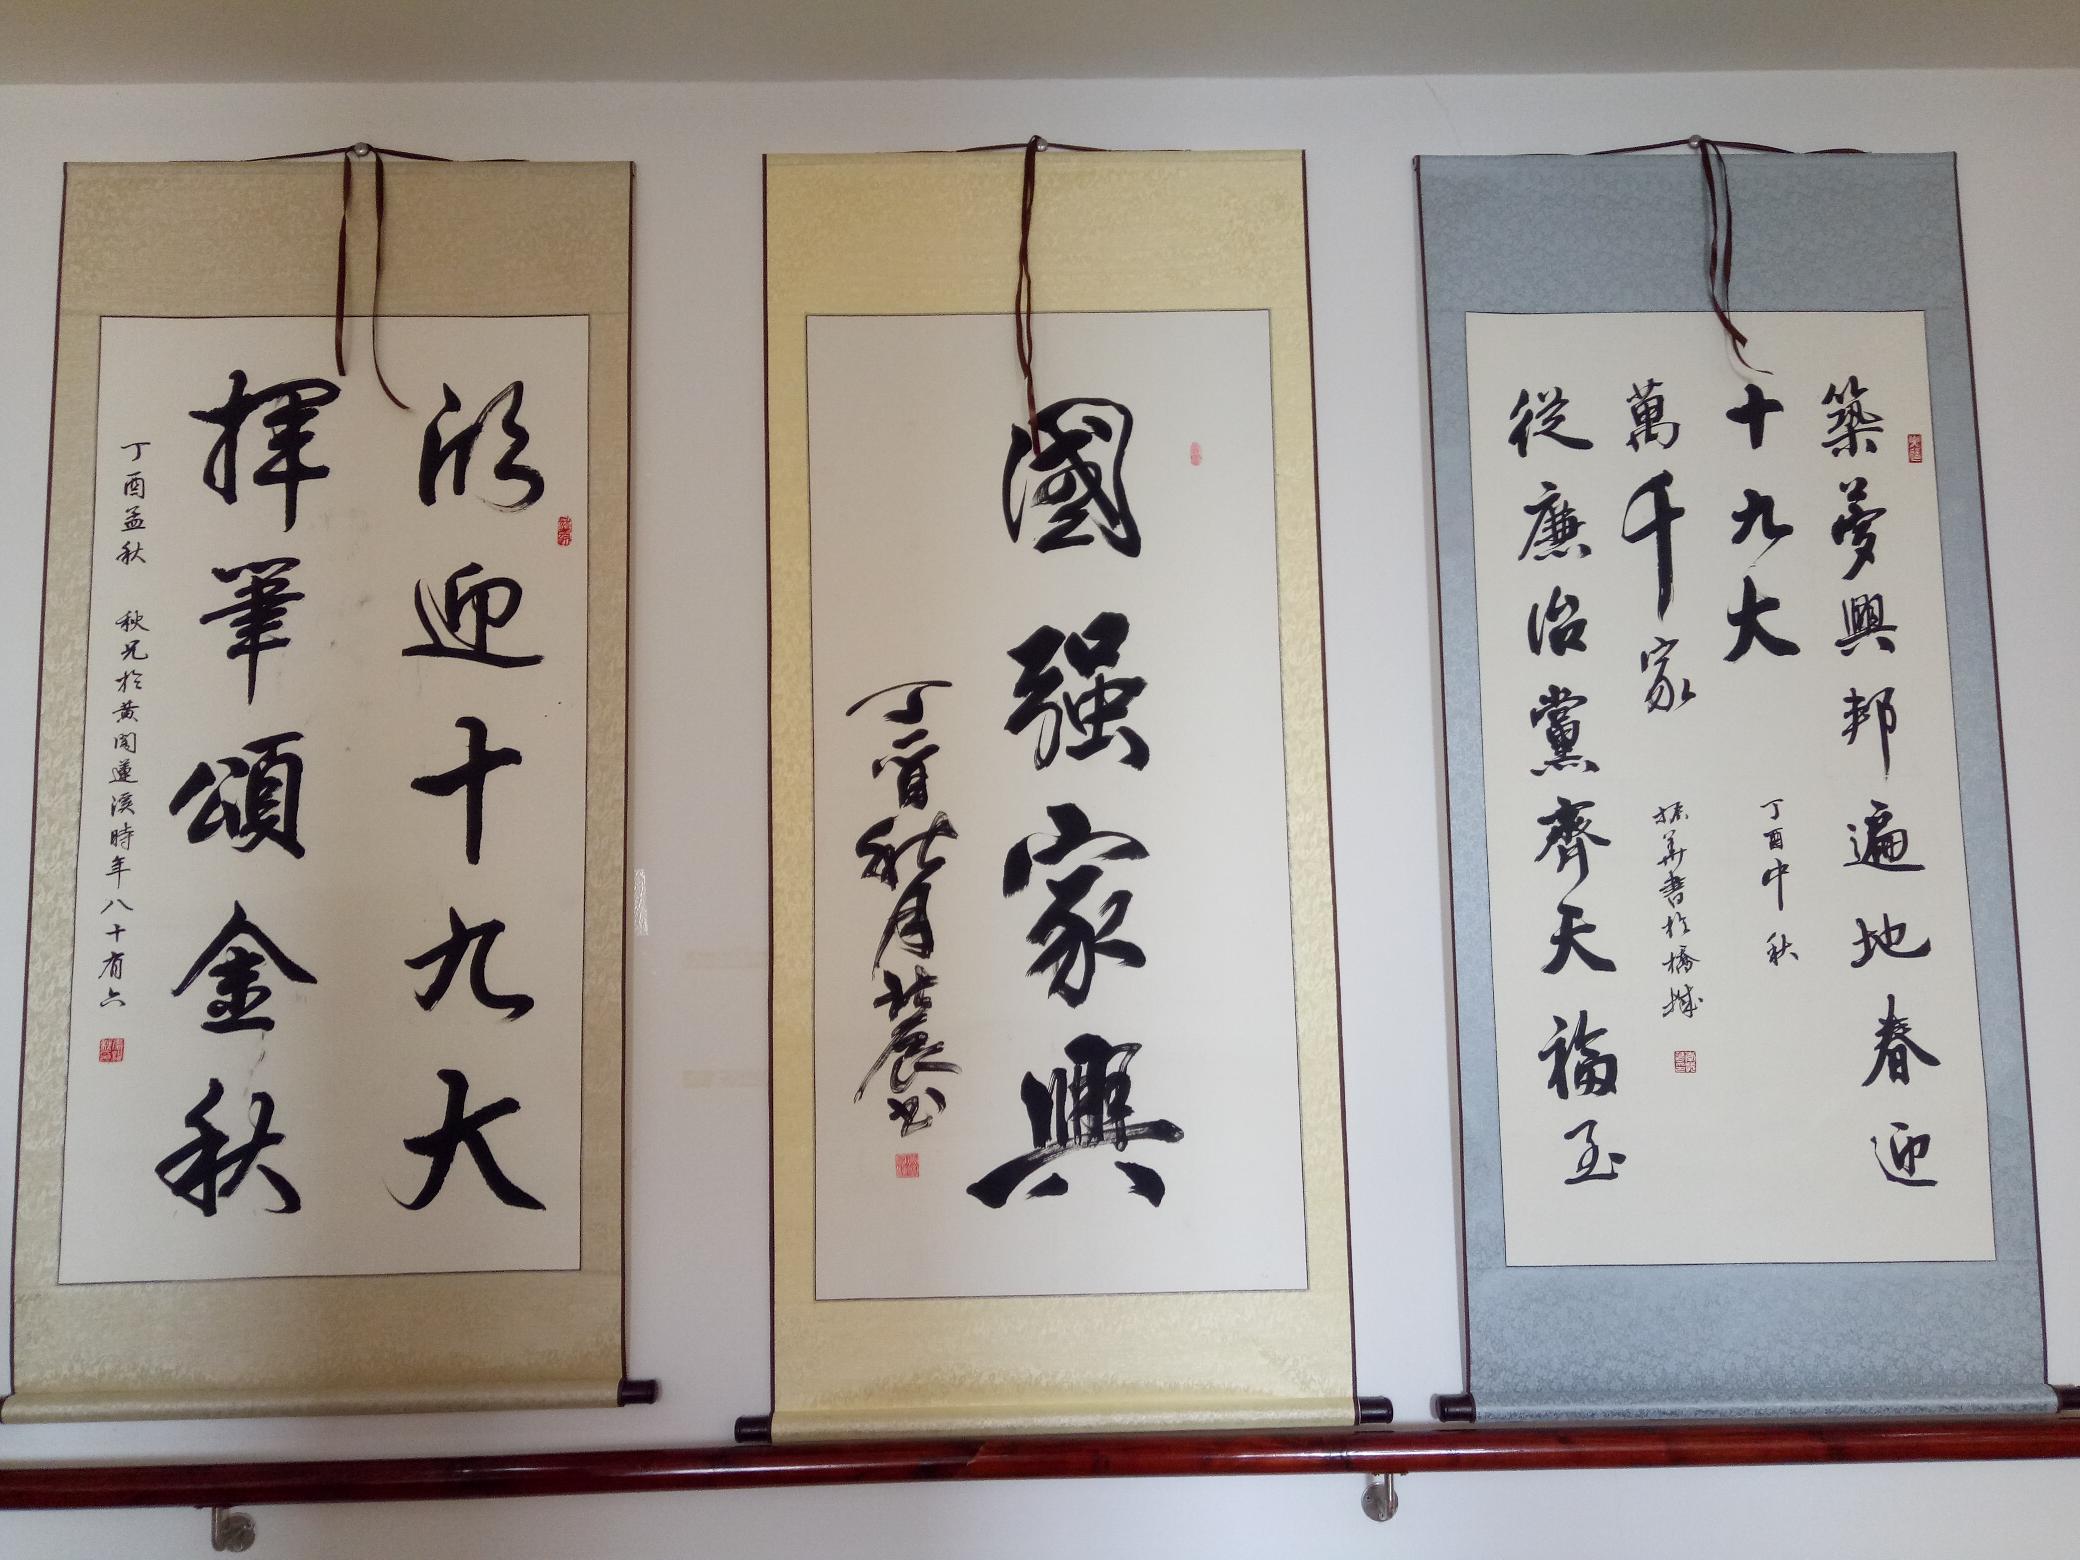 欣迎十九大
揮筆頌金秋
丁酉孟秋 秋兄於黄閣蓮溪時年八十有六
國强家興
丁酉秋月
築夢興邦遍地春迎
十九大
萬千家
從廉治黨齊天福至
丁酉中秋
振華書於橋城